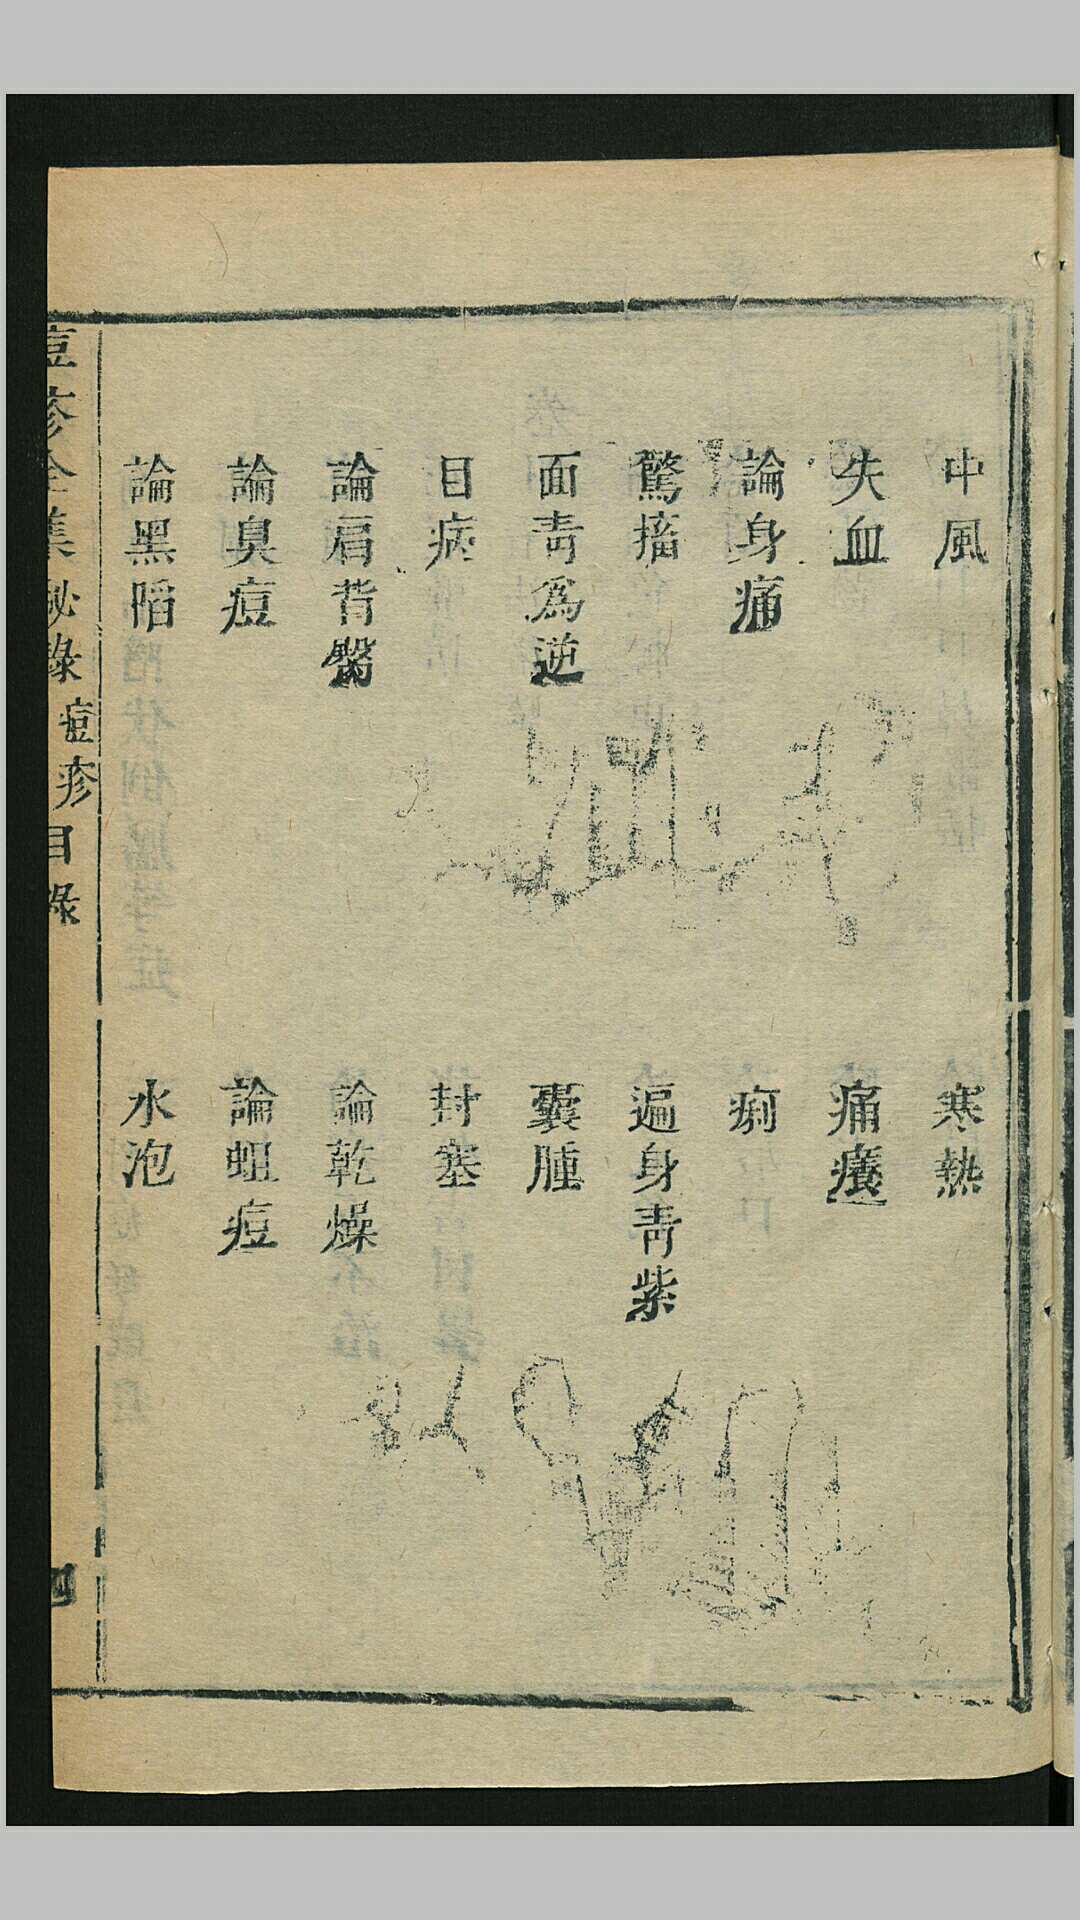 中風
寒熱
失血
痛癢
論身痛
痢
驚搐
遍身青紫
面青為逆
囊腫
目病
封塞
論肩背
論乾燥
論臭痘
論蛆痘
論黑陷
水泡
痘疹全集秘錄痘疹目錄
四